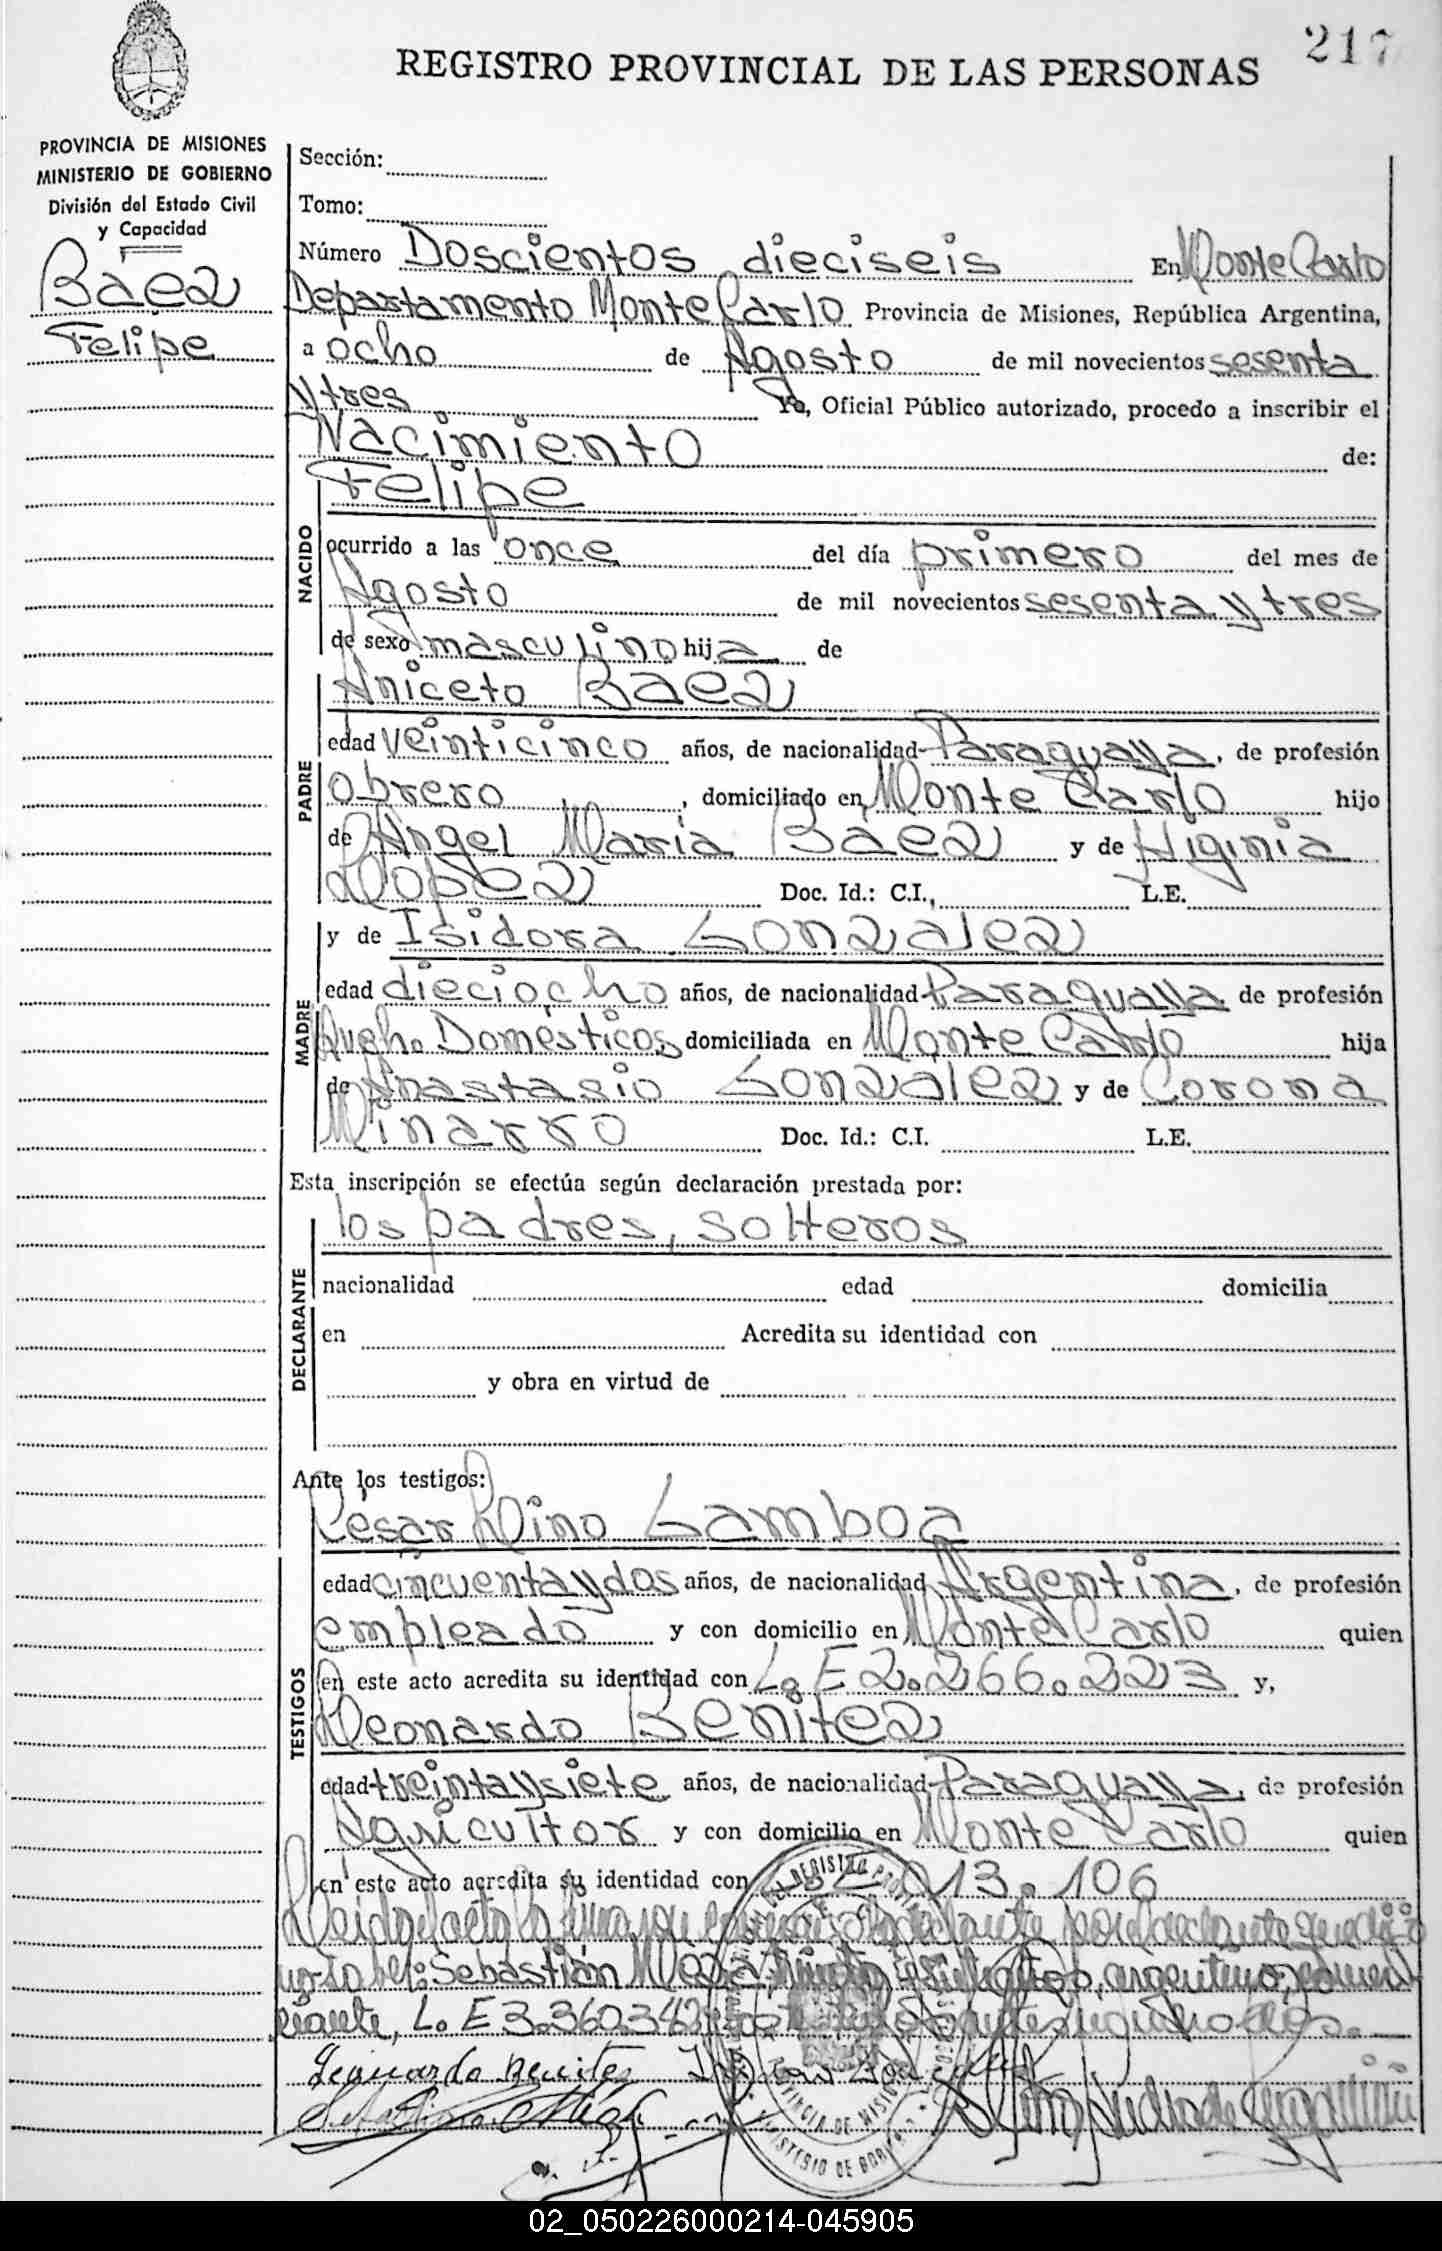 217
REGISTRO PROVINCIAL DE LAS PERSONAS
PROVINCIA DE MISIONES
MINISTERIO DE GOBIERNO
División del Estado Civil
y Capacidad
Baez
Felipe
Sección:
Tomo:
Número Doscientos dieciseis En Monte Carlo
Departamento Monte Carlo Provincia de Misiones, República Argentina,
a ocho de Agosto de mil novecientos sesenta
y tres Yo, Oficial Público autorizado, procedo a inscribir el
Nacimiento de:
Felipe
NACIDO
ocurrido a las once del día primero del mes de
Agosto de mil novecientos sesenta y tres
de sexo masculino hija de
Aniceto Baez
PADRE
edad veinticinco años, de nacionalidad Paraguaya, de profesión
obrero, domiciliado en Monte Carlo hijo
de Angel Maria Baez y de Higinia
Lopez Doc. Id.: C.I., L.E.
y de Isidora Gonzalez
MADRE
edad dieciocho años, de nacionalidad Paraguaya de profesión
Domésticos domiciliada en Monte Carlo hija
de Anastasio Gonzalez y de Corona
Minarro Doc. Id.: C.I. L.E.
Esta inscripción se efectúa según declaración prestada por:
los padres, solteros
DECLARANTE
nacionalidad edad domicilia
en Acredita su identidad con
y obra en virtud de
Ante los testigos:
Cesar Lino Gamboa
TESTIGOS
edad cincuenta y dos años, de nacionalidad Argentina, de profesión
empleado y con domicilio en Monte Carlo quien
en este acto acredita su identidad con L. E 2.266.223 y,
Leonardo Benitez
edad treinta y siete años, de nacionalidad Paraguaya, de profesión
Agricultor y con domicilio en Monte Carlo quien
en este acto acredita su identidad con 213.106
Leida el acta la
Sebastián argentino, comer
ciante, L. E 3.360.342
Leonardo Benites
02_050226000214-045905